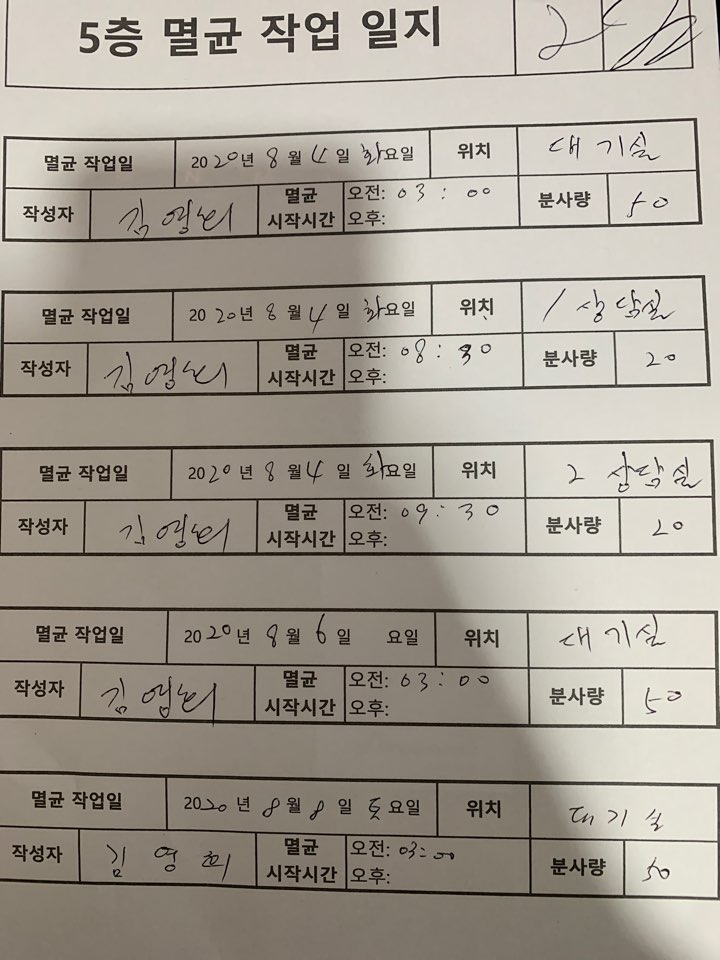 5층 멸균 작업 일지
멸균 작업일 2020년 8월 4일 화요일 위치 대기실
작성자 김영희 멸균 시작시간 오전: 03:00 오후: 분사량 50
멸균 작업일 2020년 8월 4일 화요일 위치 1 상담실
작성자 김영희 멸균 시작시간 오전: 08:30 오후: 분사량 20
멸균 작업일 2020년 8월 4일 화요일 위치 2 상담실
작성자 김영희 멸균 시작시간 오전: 09:30 오후: 분사량 20
멸균 작업일 2020년 8월 6일 요일 위치 대기실
작성자 김영희 멸균 시작시간 오전: 03:00 오후: 분사량 50
멸균 작업일 2020년 8월 8일 토요일 위치 대기실
작성자 김영희 멸균 시작시간 오전: 03:00 오후: 분사량 50